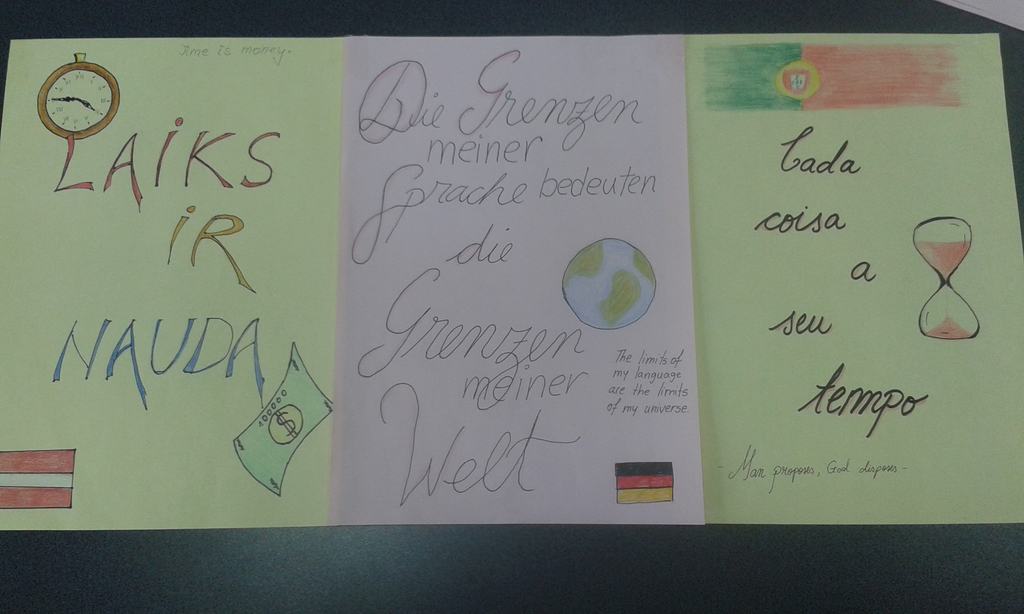 Time is money.
LAIKS
IR
NAUDA
Die Grenzen
meiner
Sprache bedeuten
die
Grenzen
meiner
Welt
The limits of
my language
are the limits
of my universe.
Cada
coisa
a
seu
tempo
- Man proposes, God disposes -